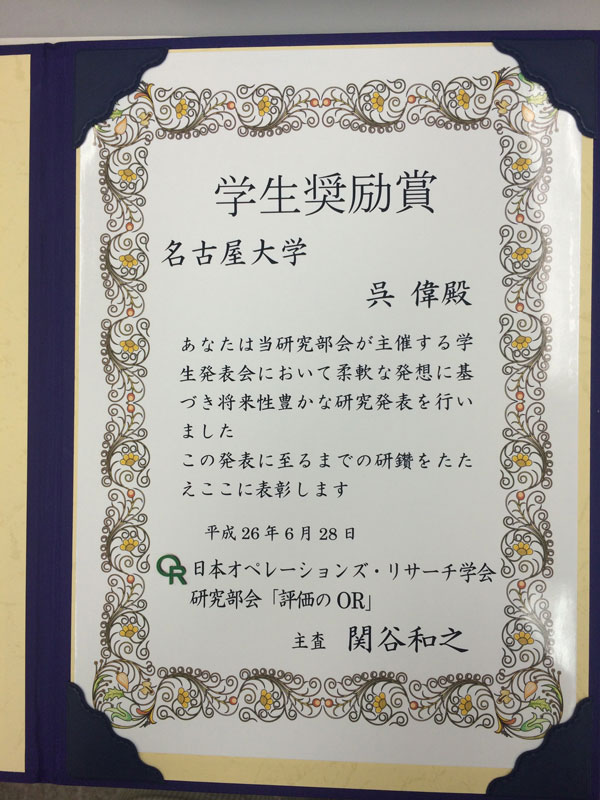 学生奨励賞
名古屋大学
呉 偉殿
あなたは当研究部会が主催する学
生発表会において柔軟な発想に基
づき将来性豊かな研究発表を行い
ました
この発表に至るまでの研鑽をたた
えここに表彰します
平成26年6月28日
OR 日本オペレーションズ・リサーチ学会
研究部会「評価のOR」
主査 関谷和之